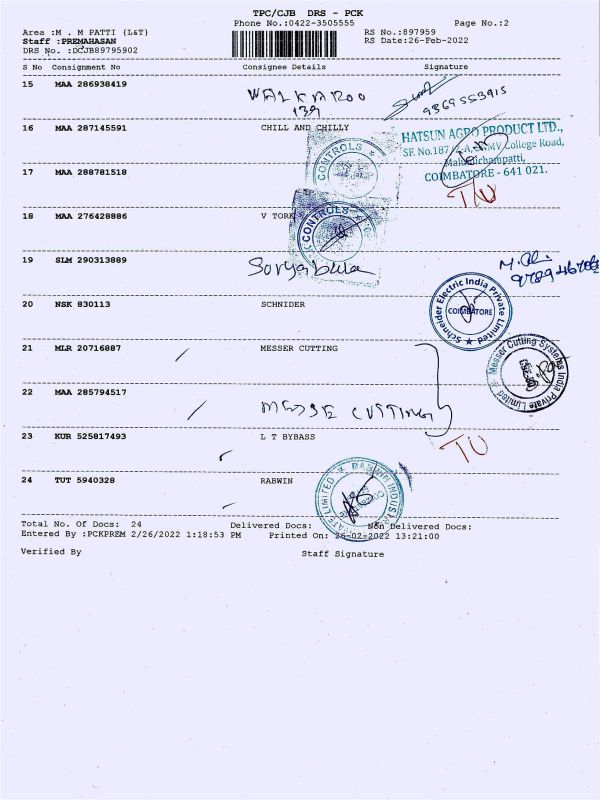 TPC/CJB DRS - PCK
Phone No.:0422-3505555 Page No.:2
Area :M . M PATTI (L&T) RS No.:897959
Staff :PREMAHASAN RS Date:26-Feb-2022
DRS No. :DCJB89795902
S No Consignment No Consignee Details Signature
15 MAA 286938419
WALKAROO
139
9369553915
16 MAA 287145591 CHILL AND CHILLY
HATSUN AGRO PRODUCT LTD.,
College Road,
COIMBATORE - 641 021.
CONTROLS
17 MAA 288781518
T/U
18 MAA 276428886 V TORK
CONTROLS
19 SLM 290313889
20 NSK 830113 SCHNIDER
Schneider Electric India Private Limited
COIMBATORE
21 MLR 20716887 MESSER CUTTING
Messer Cutting Systems India Private Limited
22 MAA 285794517
CUTTING
23 KUR 525817493 L T BYBASS
TU
24 TUT 5940328 RABWIN
Total No. Of Docs: 24 Delivered Docs: Non Delivered Docs:
Entered By :PCKPREM 2/26/2022 1:18:53 PM Printed On: 26-02-2022 13:21:00
Verified By Staff Signature